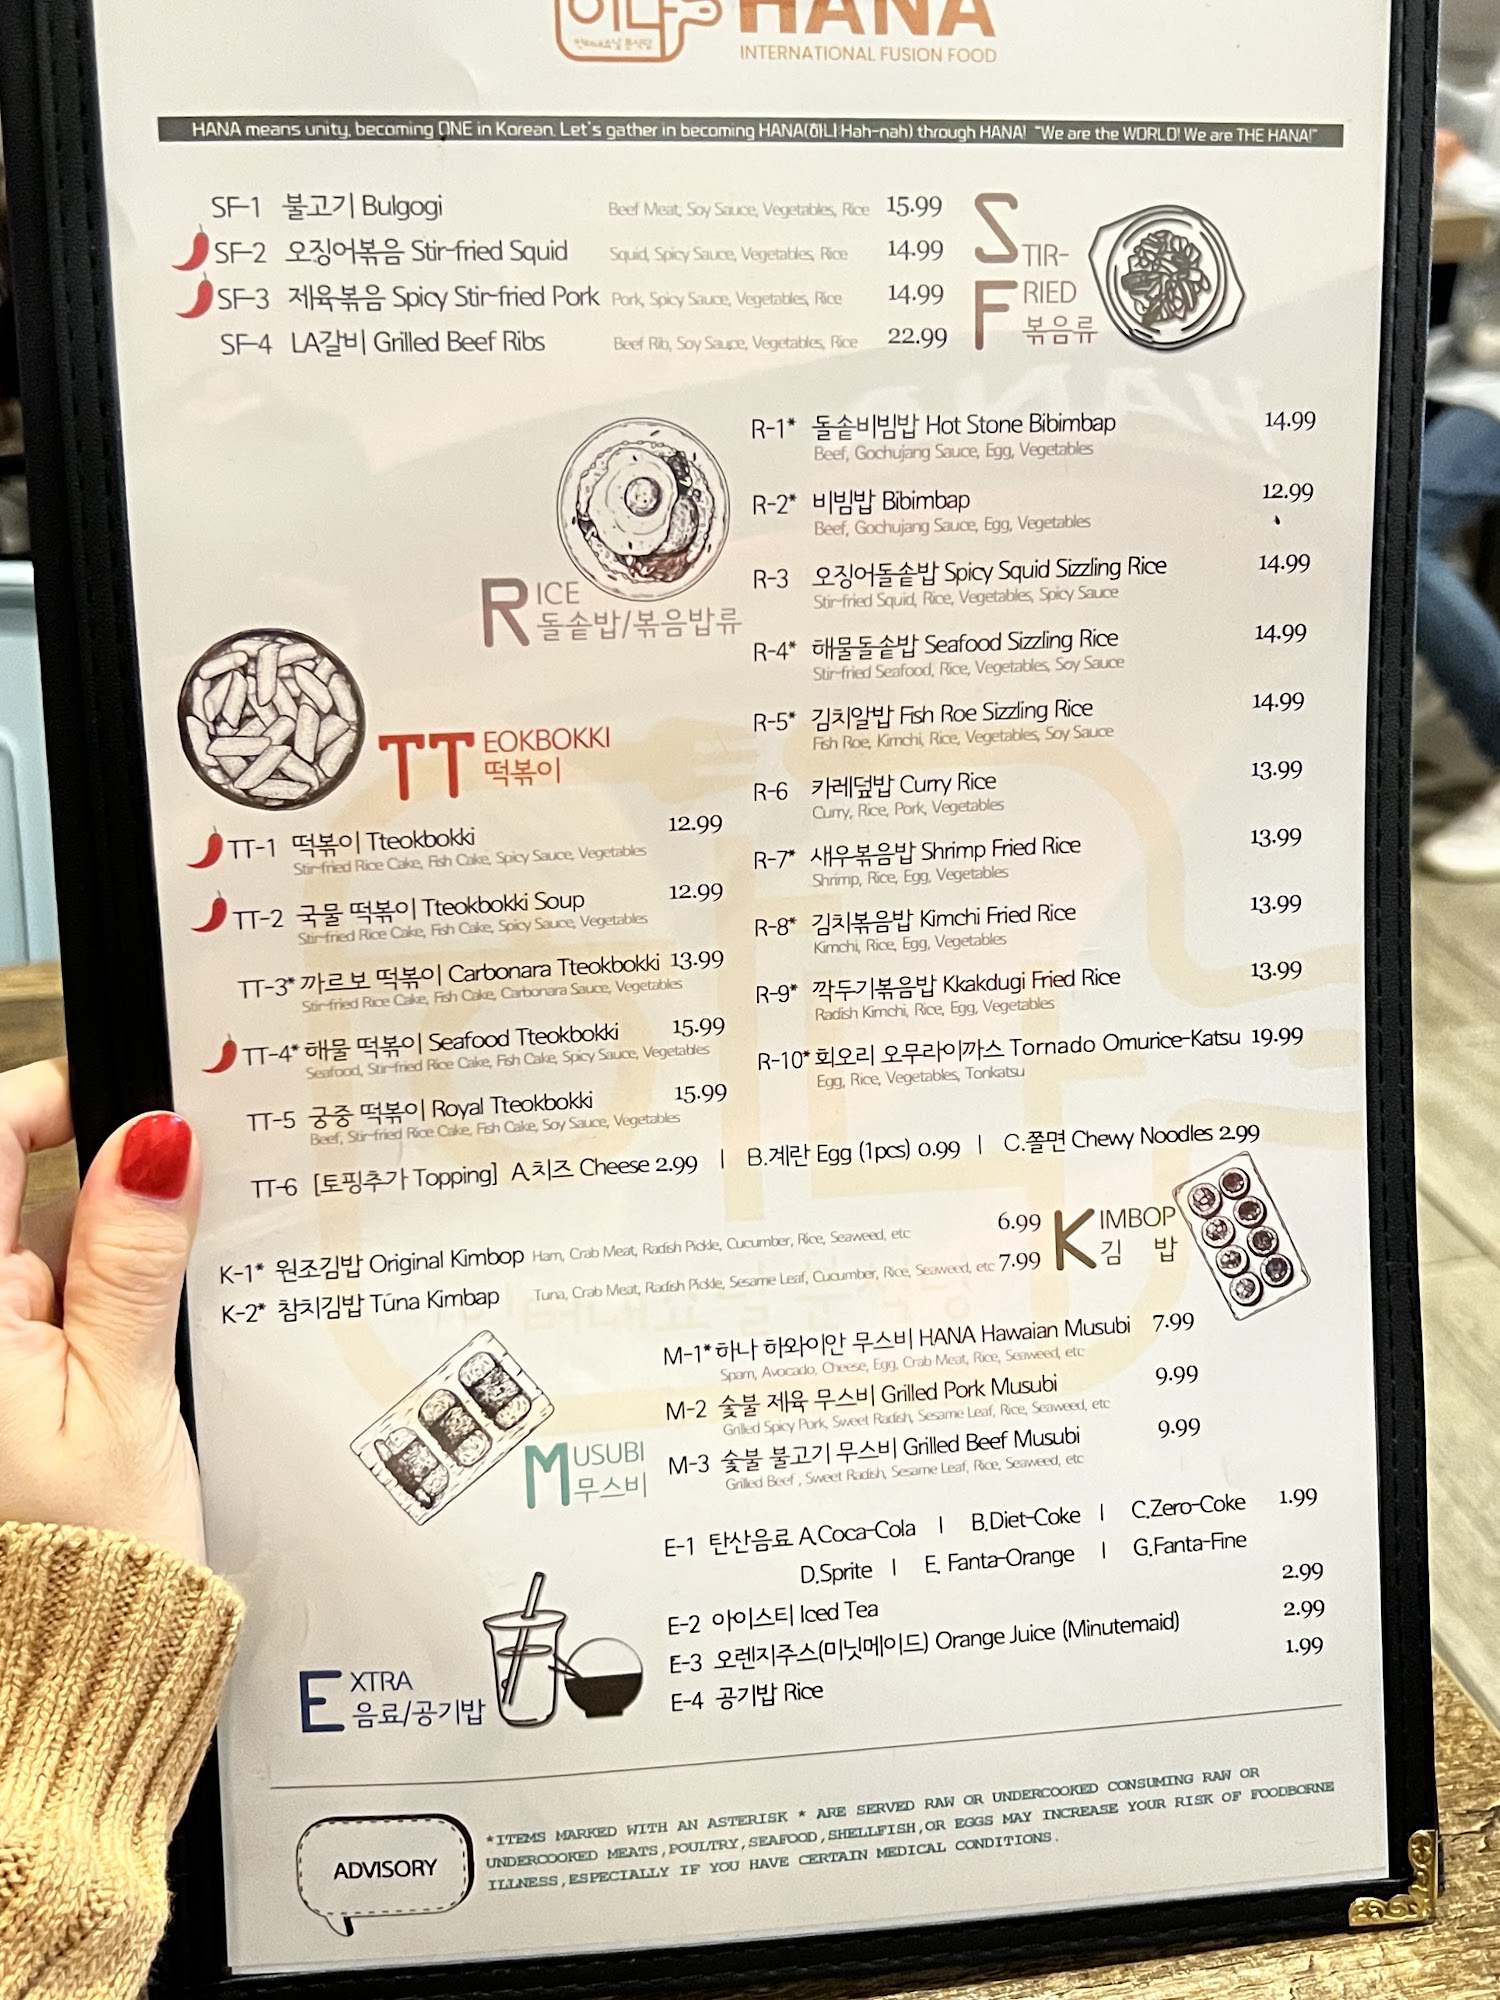 하나 HANA
인터내쇼날 분식당
INTERNATIONAL FUSION FOOD
HANA means unity, becoming ONE in Korean. Let's gather in becoming HANA(하나:Hah-nah) through HANA! "We are the WORLD! We are THE HANA!"
SF-1 불고기 Bulgogi Beef Meat, Soy Sauce, Vegetables, Rice 15.99
SF-2 오징어볶음 Stir-fried Squid Squid, Spicy Sauce, Vegetables, Rice 14.99
SF-3 제육볶음 Spicy Stir-fried Pork Pork, Spicy Sauce, Vegetables, Rice 14.99
SF-4 LA갈비 Grilled Beef Ribs Beef Rib, Soy Sauce, Vegetables, Rice 22.99
STIR-
FRIED
볶음류
RICE
돌솥밥/볶음밥류
R-1* 돌솥비빔밥 Hot Stone Bibimbap 14.99
Beef, Gochujang Sauce, Egg, Vegetables
R-2* 비빔밥 Bibimbap 12.99
Beef, Gochujang Sauce, Egg, Vegetables
R-3 오징어돌솥밥 Spicy Squid Sizzling Rice 14.99
Stir-fried Squid, Rice, Vegetables, Spicy Sauce
R-4* 해물돌솥밥 Seafood Sizzling Rice 14.99
Stir-fried Seafood, Rice, Vegetables, Soy Sauce
R-5* 김치알밥 Fish Roe Sizzling Rice 14.99
Fish Roe, Kimchi, Rice, Vegetables, Soy Sauce
R-6 카레덮밥 Curry Rice 13.99
Curry, Rice, Pork, Vegetables
R-7* 새우볶음밥 Shrimp Fried Rice 13.99
Shrimp, Rice, Egg, Vegetables
R-8* 김치볶음밥 Kimchi Fried Rice 13.99
Kimchi, Rice, Egg, Vegetables
R-9* 깍두기볶음밥 Kkakdugi Fried Rice 13.99
Radish Kimchi, Rice, Egg, Vegetables
R-10* 회오리 오무라이까스 Tornado Omurice-Katsu 19.99
Egg, Rice, Vegetables, Tonkatsu
TTEOKBOKKI
떡볶이
TT-1 떡볶이 Tteokbokki 12.99
Stir-fried Rice Cake, Fish Cake, Spicy Sauce, Vegetables
TT-2 국물 떡볶이 Tteokbokki Soup 12.99
Stir-fried Rice Cake, Fish Cake, Spicy Sauce, Vegetables
TT-3* 까르보 떡볶이 Carbonara Tteokbokki 13.99
Stir-fried Rice Cake, Fish Cake, Carbonara Sauce, Vegetables
TT-4* 해물 떡볶이 Seafood Tteokbokki 15.99
Seafood, Stir-fried Rice Cake, Fish Cake, Spicy Sauce, Vegetables
TT-5 궁중 떡볶이 Royal Tteokbokki 15.99
Beef, Stir-fried Rice Cake, Fish Cake, Soy Sauce, Vegetables
TT-6 [토핑추가 Topping] A.치즈 Cheese 2.99 | B.계란 Egg (1pcs) 0.99 | C.쫄면 Chewy Noodles 2.99
K-1* 원조김밥 Original Kimbop Ham, Crab Meat, Radish Pickle, Cucumber, Rice, Seaweed, etc 6.99
K-2* 참치김밥 Tuna Kimbap Tuna, Crab Meat, Radish Pickle, Sesame Leaf, Cucumber, Rice, Seaweed, etc 7.99
KIMBOP
김 밥
M-1* 하나 하와이안 무스비 HANA Hawaiian Musubi 7.99
Spam, Avocado, Cheese, Egg, Crab Meat, Rice, Seaweed, etc
M-2 숯불 제육 무스비 Grilled Pork Musubi 9.99
Grilled Spicy Pork, Sweet Radish, Sesame Leaf, Rice, Seaweed, etc
M-3 숯불 불고기 무스비 Grilled Beef Musubi 9.99
Grilled Beef , Sweet Radish, Sesame Leaf, Rice, Seaweed, etc
MUSUBI
무스비
E-1 탄산음료 A.Coca-Cola | B.Diet-Coke | C.Zero-Coke 1.99
D.Sprite | E. Fanta-Orange | G.Fanta-Fine
E-2 아이스티 Iced Tea 2.99
E-3 오렌지주스(미닛메이드) Orange Juice (Minutemaid) 2.99
E-4 공기밥 Rice 1.99
EXTRA
음료/공기밥
ADVISORY
*ITEMS MARKED WITH AN ASTERISK * ARE SERVED RAW OR UNDERCOOKED CONSUMING RAW OR
UNDERCOOKED MEATS,POULTRY,SEAFOOD,SHELLFISH,OR EGGS MAY INCREASE YOUR RISK OF FOODBORNE
ILLNESS,ESPECIALLY IF YOU HAVE CERTAIN MEDICAL CONDITIONS.